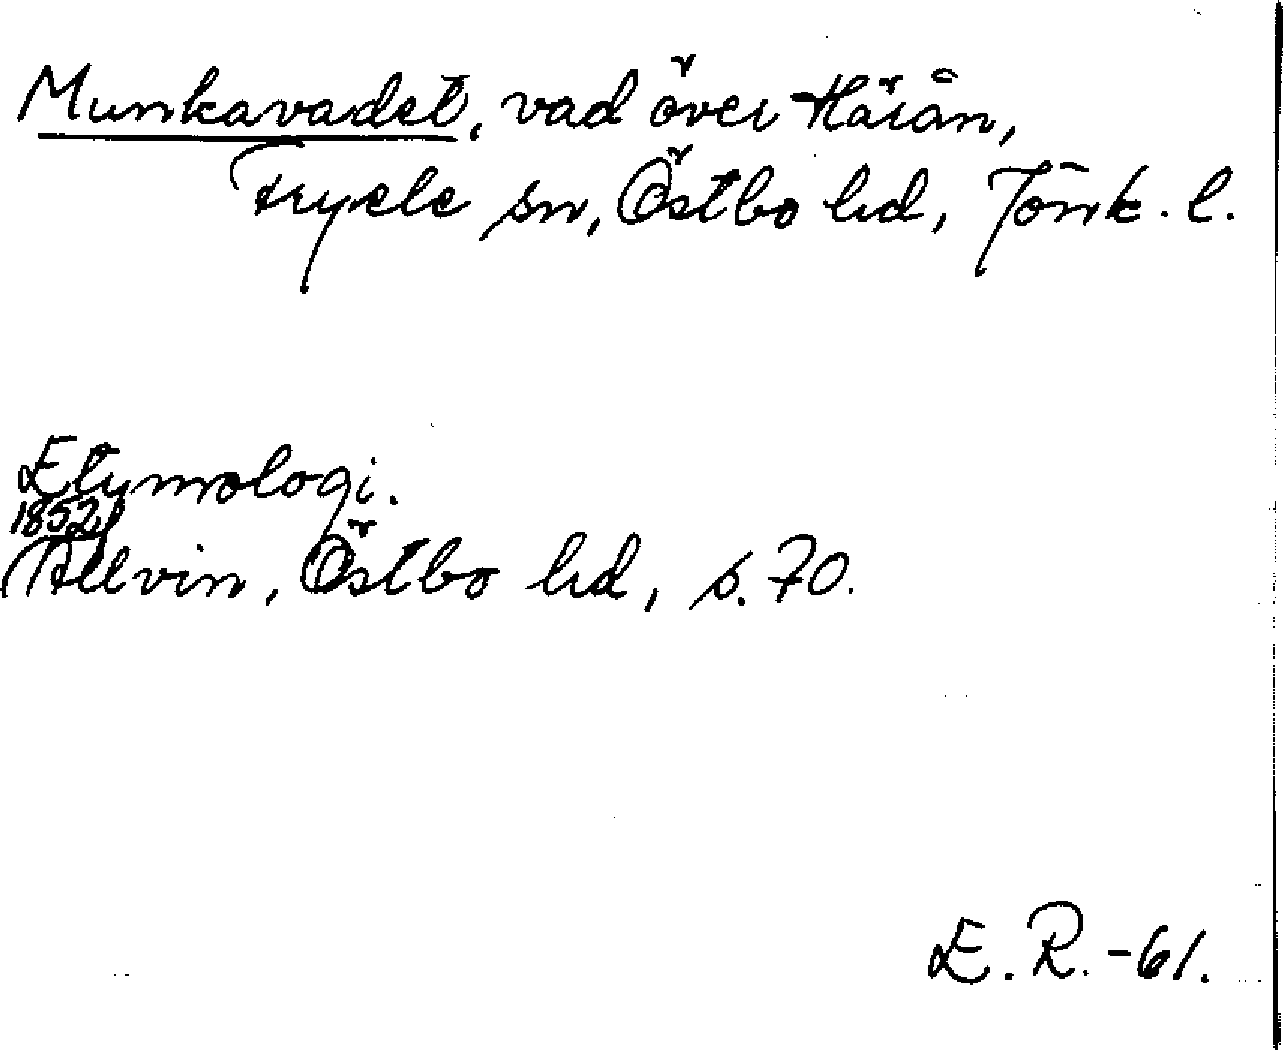 Munkavadet, vad över Härån,
Fryele sn, Östbo hd, Jönk. l.
Etymologi.
1852
Allvin, Östbo hd, s. 70.
E. R. -61.